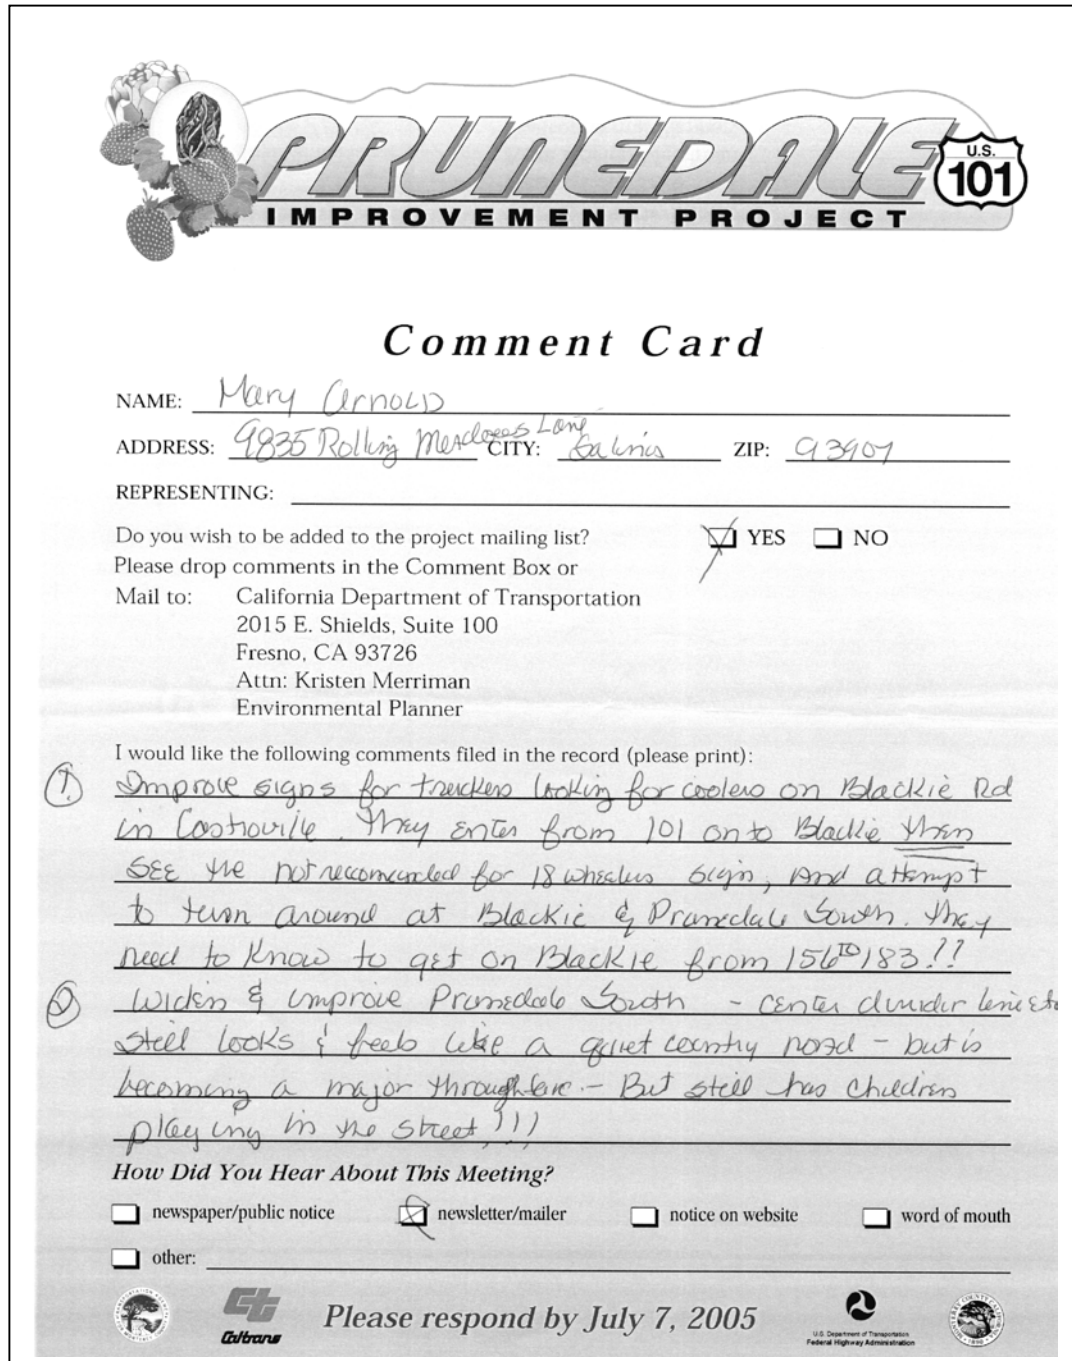 PRUNEDALE
U.S.
101
IMPROVEMENT PROJECT
Comment Card
NAME: Mary Arnold
ADDRESS: 9835 Rolling Meadows Lane CITY: Salinas ZIP: 93907
REPRESENTING:
Do you wish to be added to the project mailing list? YES NO
Please drop comments in the Comment Box or
Mail to: California Department of Transportation
2015 E. Shields, Suite 100
Fresno, CA 93726
Attn: Kristen Merriman
Environmental Planner
I would like the following comments filed in the record (please print):
1. Improve signs for truckers looking for coolers on Blackie Rd
in Castroville. They enter from 101 on to Blackie then
SEE the not recomended for 18 wheelers sign, and attempt
to turn around at Blackie & Prunedale South. They
need to know to get on Blackie from 156 TO 183!!
2 Widen & improve Prunedale South - center divider line etc
still looks & feels like a quiet country road - but is
becoming a major throughfare - But still has children
playing in the street!!!
How Did You Hear About This Meeting?
newspaper/public notice newsletter/mailer notice on website word of mouth
other:
Ct
Caltrans
Please respond by July 7, 2005
U.S. Department of Transportation
Federal Highway Administration